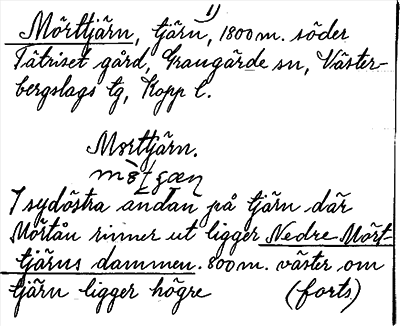 Mörttjärn, tjärn, 1800 m. söder 1)
Tätriset gård, Grangärde sn, Väster-
bergslags tg, Kopp l.
Morttjärn.
I sydöstra ändan på tjärn där
Mörtån rinner ut ligger Nedre Mört-
tjärns dammen. 800 m. väster om
tjärn ligger högre (forts)